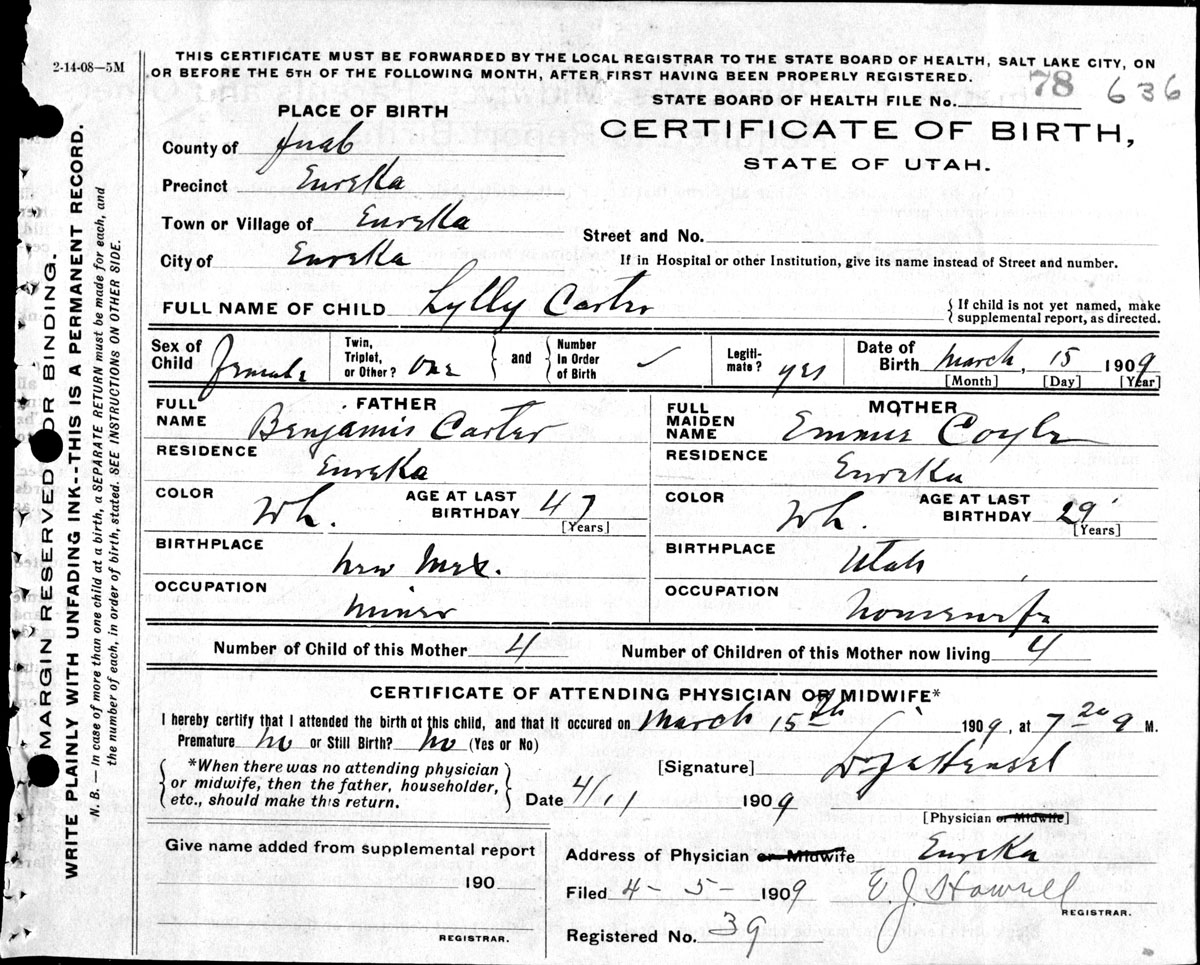 2-14-08—5M
THIS CERTIFICATE MUST BE FORWARDED BY THE LOCAL REGISTRAR TO THE STATE BOARD OF HEALTH, SALT LAKE CITY, ON
OR BEFORE THE 5TH OF THE FOLLOWING MONTH, AFTER FIRST HAVING BEEN PROPERLY REGISTERED.
STATE BOARD OF HEALTH FILE No. 78 636
PLACE OF BIRTH
CERTIFICATE OF BIRTH,
STATE OF UTAH.
County of Juab
Precinct Eureka
Town or Village of Eureka
Street and No.
City of Eureka
If in Hospital or other Institution, give its name instead of Street and number.
FULL NAME OF CHILD Lylly Carter
{If child is not yet named, make
supplemental report, as directed.
Sex of Child Female
Twin, Triplet, or Other? One } and { Number in Order of Birth ✓
Legiti-mate? yes
Date of Birth March, 15 1909
[Month] [Day] [Year]
FATHER
FULL NAME Benjamin Carter
RESIDENCE Eureka
COLOR Wh. AGE AT LAST BIRTHDAY 47
[Years]
BIRTHPLACE New Mex.
OCCUPATION Miner
MOTHER
FULL MAIDEN NAME Emmie Coyle
RESIDENCE Eureka
COLOR Wh. AGE AT LAST BIRTHDAY 29
[Years]
BIRTHPLACE Utah
OCCUPATION Housewife
Number of Child of this Mother 4 Number of Children of this Mother now living 4
CERTIFICATE OF ATTENDING PHYSICIAN OR MIDWIFE*
I hereby certify that I attended the birth of this child, and that it occured on March 15th 1909, at 7 20 a M.
Premature No or Still Birth? No (Yes or No)
*When there was no attending physician
or midwife, then the father, householder,
etc., should make this return.
[Signature] Hensel
Date 4/1 1909
[Physician or Midwife]
Give name added from supplemental report
190
REGISTRAR.
Address of Physician or Midwife Eureka
Filed 4-5-1909 E. J. Howell
REGISTRAR.
Registered No. 39
MARGIN RESERVED FOR BINDING.
WRITE PLAINLY WITH UNFADING INK--THIS IS A PERMANENT RECORD.
N. B.—In case of more than one child at a birth, a SEPARATE RETURN must be made for each, and
the number of each, in order of birth, stated. SEE INSTRUCTIONS ON OTHER SIDE.